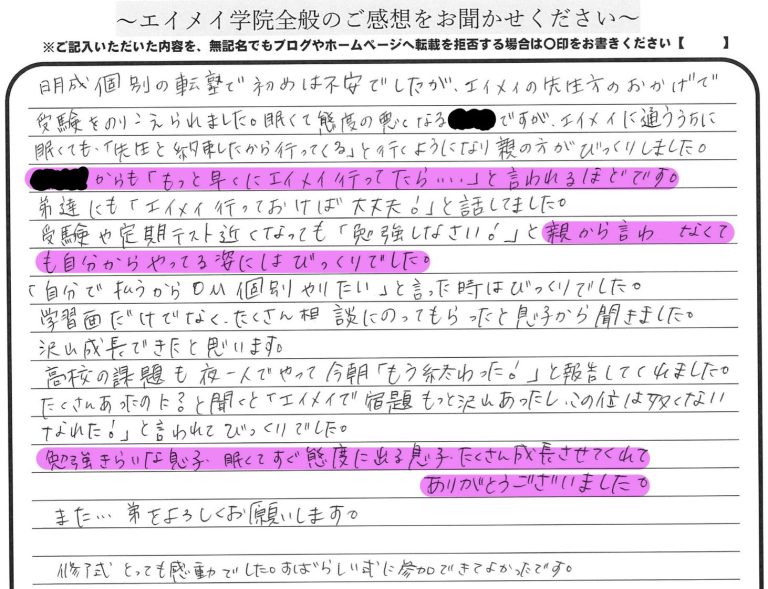 ～エイメイ学院全般のご感想をお聞かせください～
※ご記入いただいた内容を、無記名でもブログやホームページへ転載を拒否する場合は〇印をお書きください【　　】
明成個別の転塾で初めは不安でしたが、エイメイの先生方のおかげで
受験をのりこえられました。眠くて態度の悪くなる ですが、エイメイに通ううちに
眠くても、「先生と約束したから行ってくる」と行くようになり親の方がびっくりしました。
からも「もっと早くにエイメイ行ってたら…」と言われるほどです。
弟達にも「エイメイ行っておけば大丈夫！」と話してました。
受験や定期テスト近くなっても「勉強しなさい！」と親から言わ なくて
も自分からやってる姿にはびっくりでした。
「自分で払うから 個別やりたい」と言った時はびっくりでした。
学習面だけでなく、たくさん相談にのってもらったと息子から聞きました。
沢山成長できたと思います。
高校の課題も夜一人でやって今朝「もう終わった！」と報告してくれました。
たくさんあったのに？と聞くと「エイメイで宿題もっと沢山あったし、この位は多くない
なれた！」と言われてびっくりでした。
勉強きらいな息子、眠くてすぐ態度に出る息子、たくさん成長させてくれて
ありがとうございました。
また…弟をよろしくお願いします。
修了式 とっても感動でした。すばらしい式に参加できてよかったです。